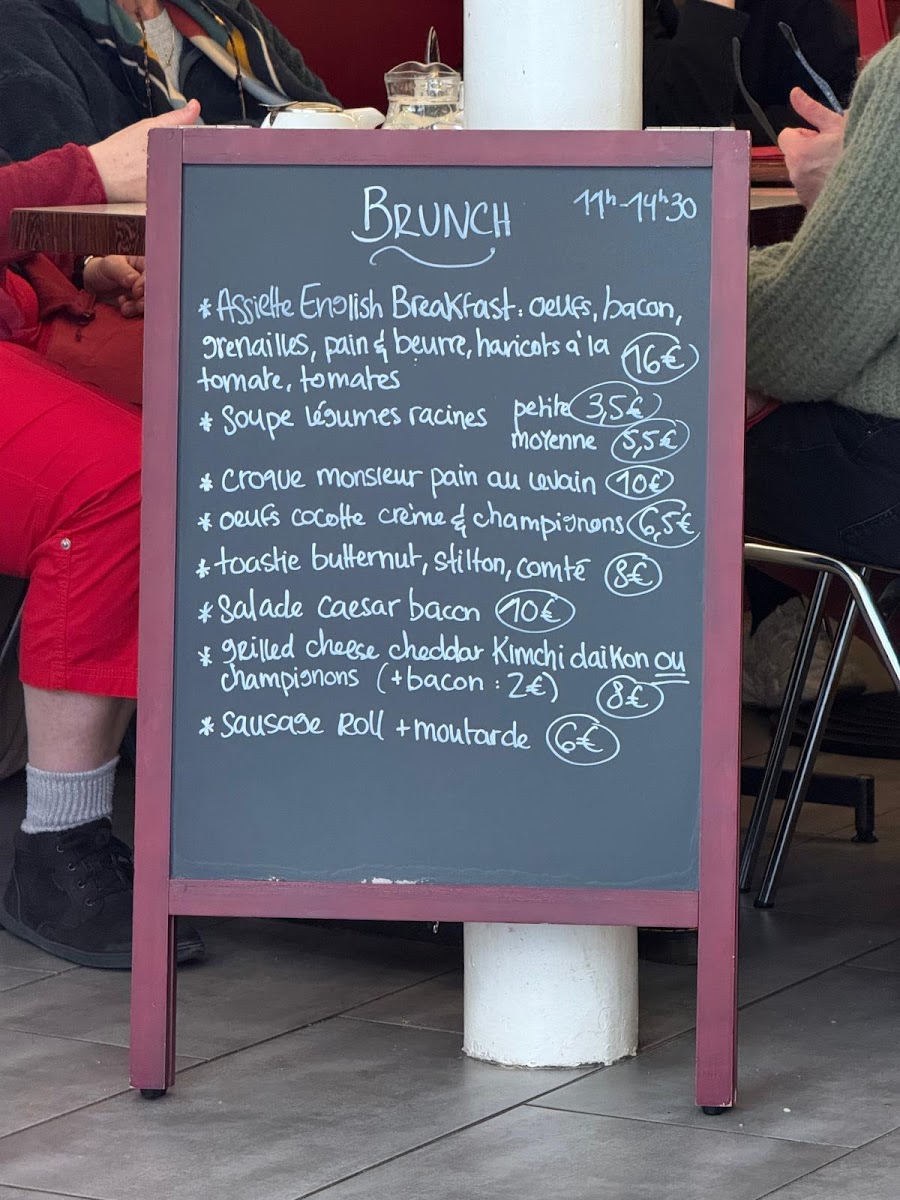 BRUNCH 11h-14h30
* Assiette English Breakfast: oeufs, bacon,
grenailles, pain & beurre, haricots à la 16€
tomate, tomates
* Soupe légumes racines petite 3,5€
moyenne 5,5€
* croque monsieur pain au levain 10€
* oeufs cocotte crème & champignons 6,5€
* toastie butternut, stilton, comté 8€
* Salade caesar bacon 10€
* grilled cheese cheddar Kimchi daikon ou
champignons (+bacon : 2€) 8€
* Sausage Roll + moutarde 6€